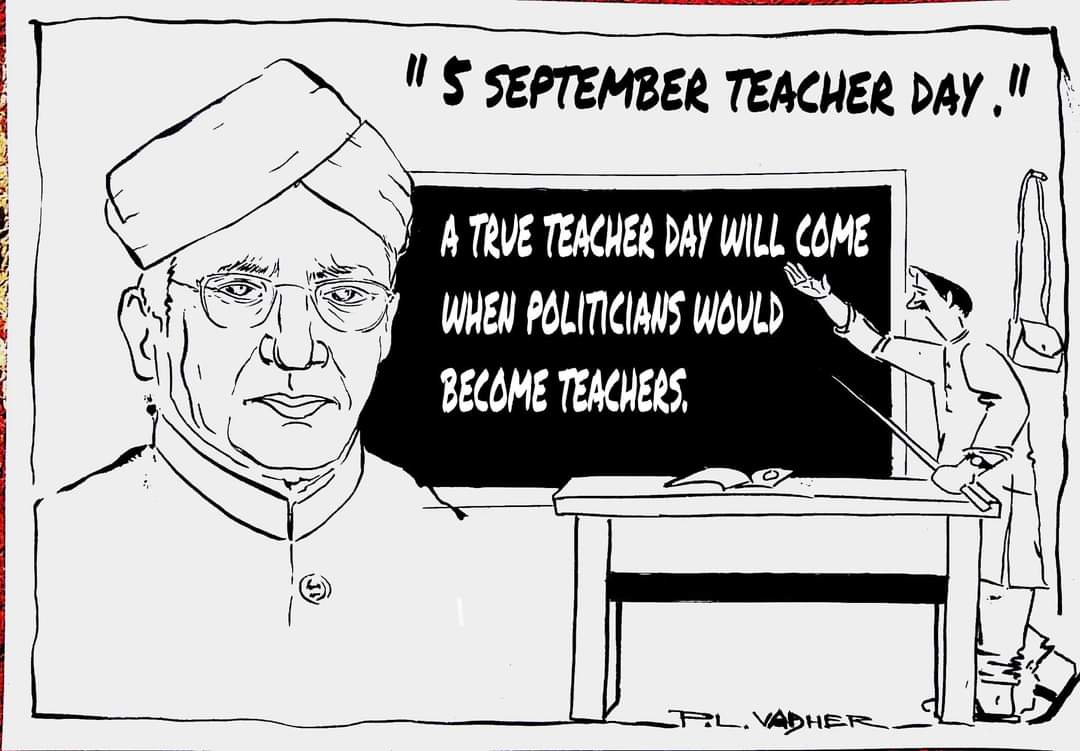 " 5 SEPTEMBER TEACHER DAY ."
A TRUE TEACHER DAY WILL COME
WHEN POLITICIANS WOULD
BECOME TEACHERS.
P.L. VADHER